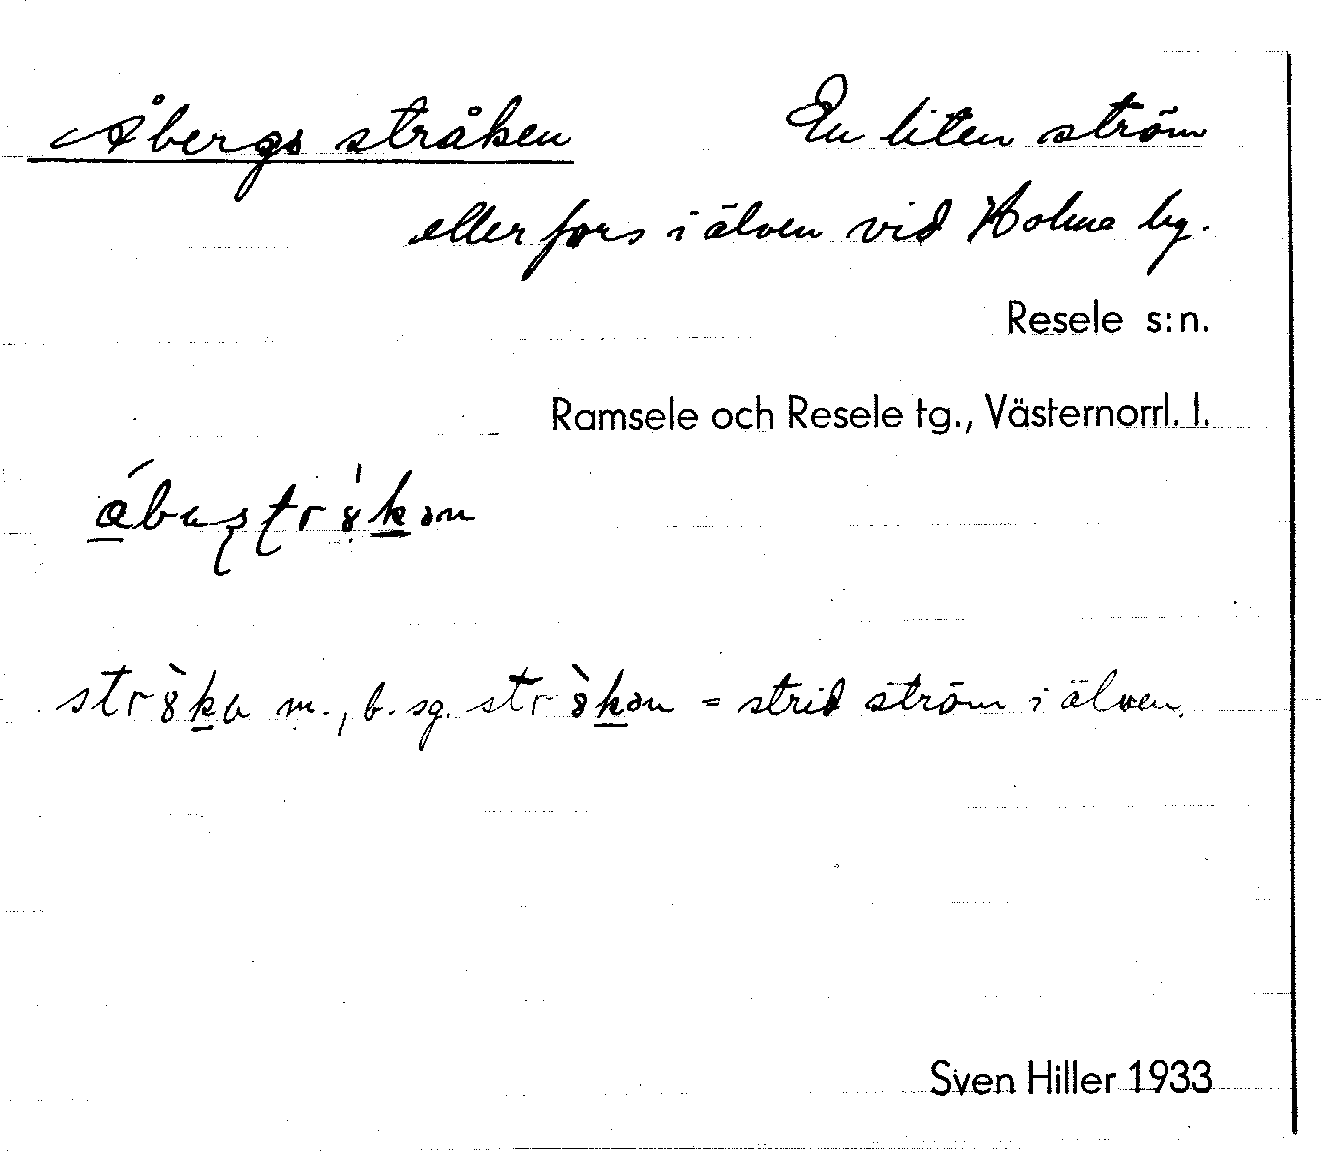 Åbergs stråken En liten ström
eller fors i älven vid Holme by.
Resele s:n.
Ramsele och Resele tg., Västernorrl. l.
m., b. sg. = strid ström i älven.
Sven Hiller 1933